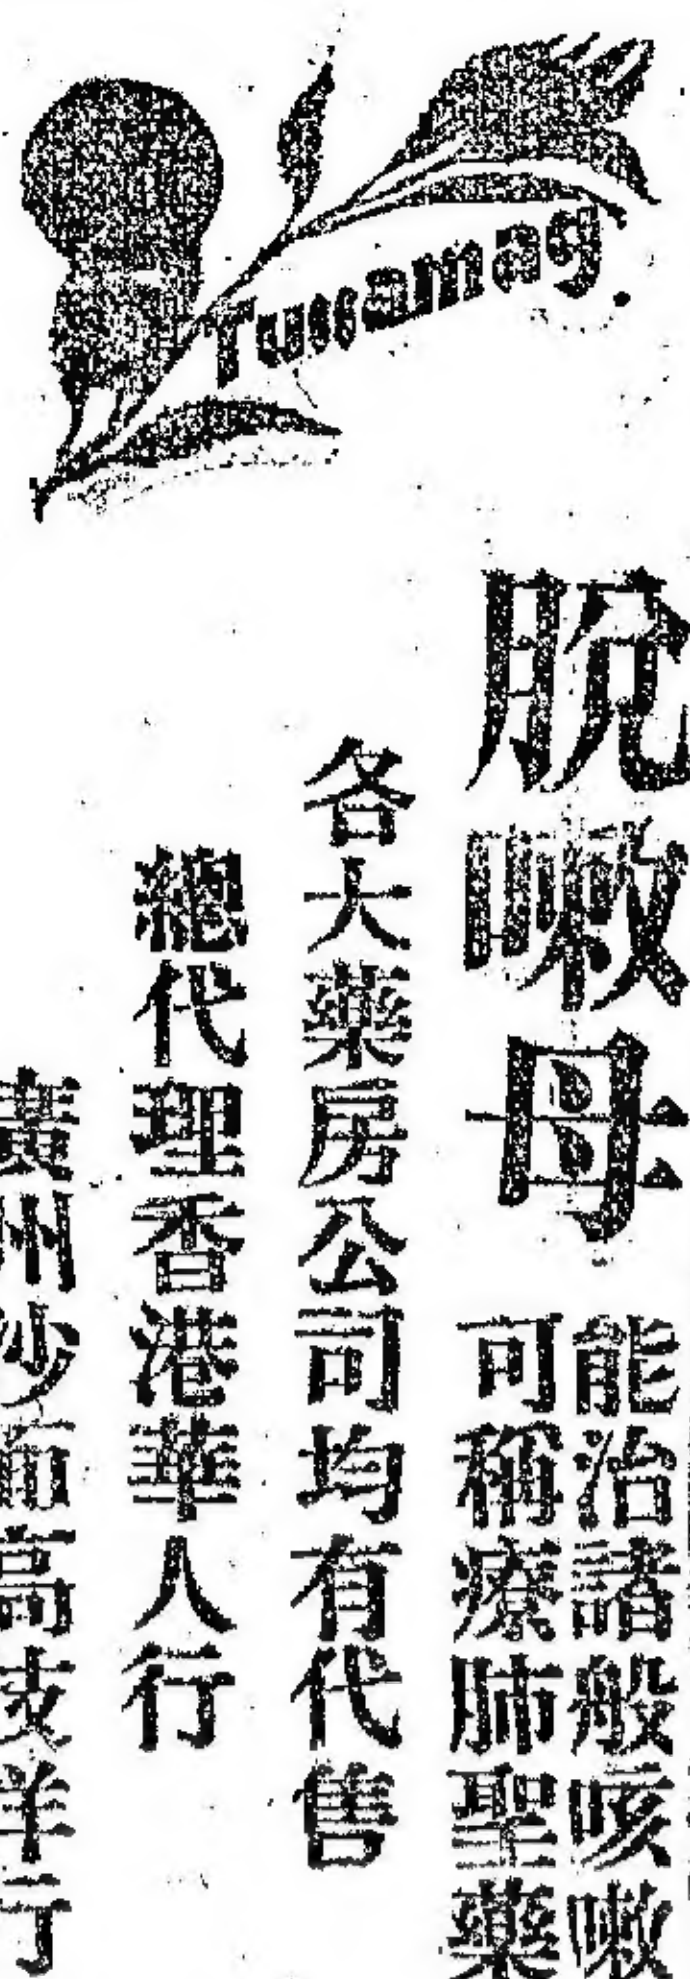 Tussamag.
脫嗽母
能治諸般咳嗽
可稱療肺聖藥
各大藥房公司均有代售
總代理香港華人行
廣州沙面高友洋行